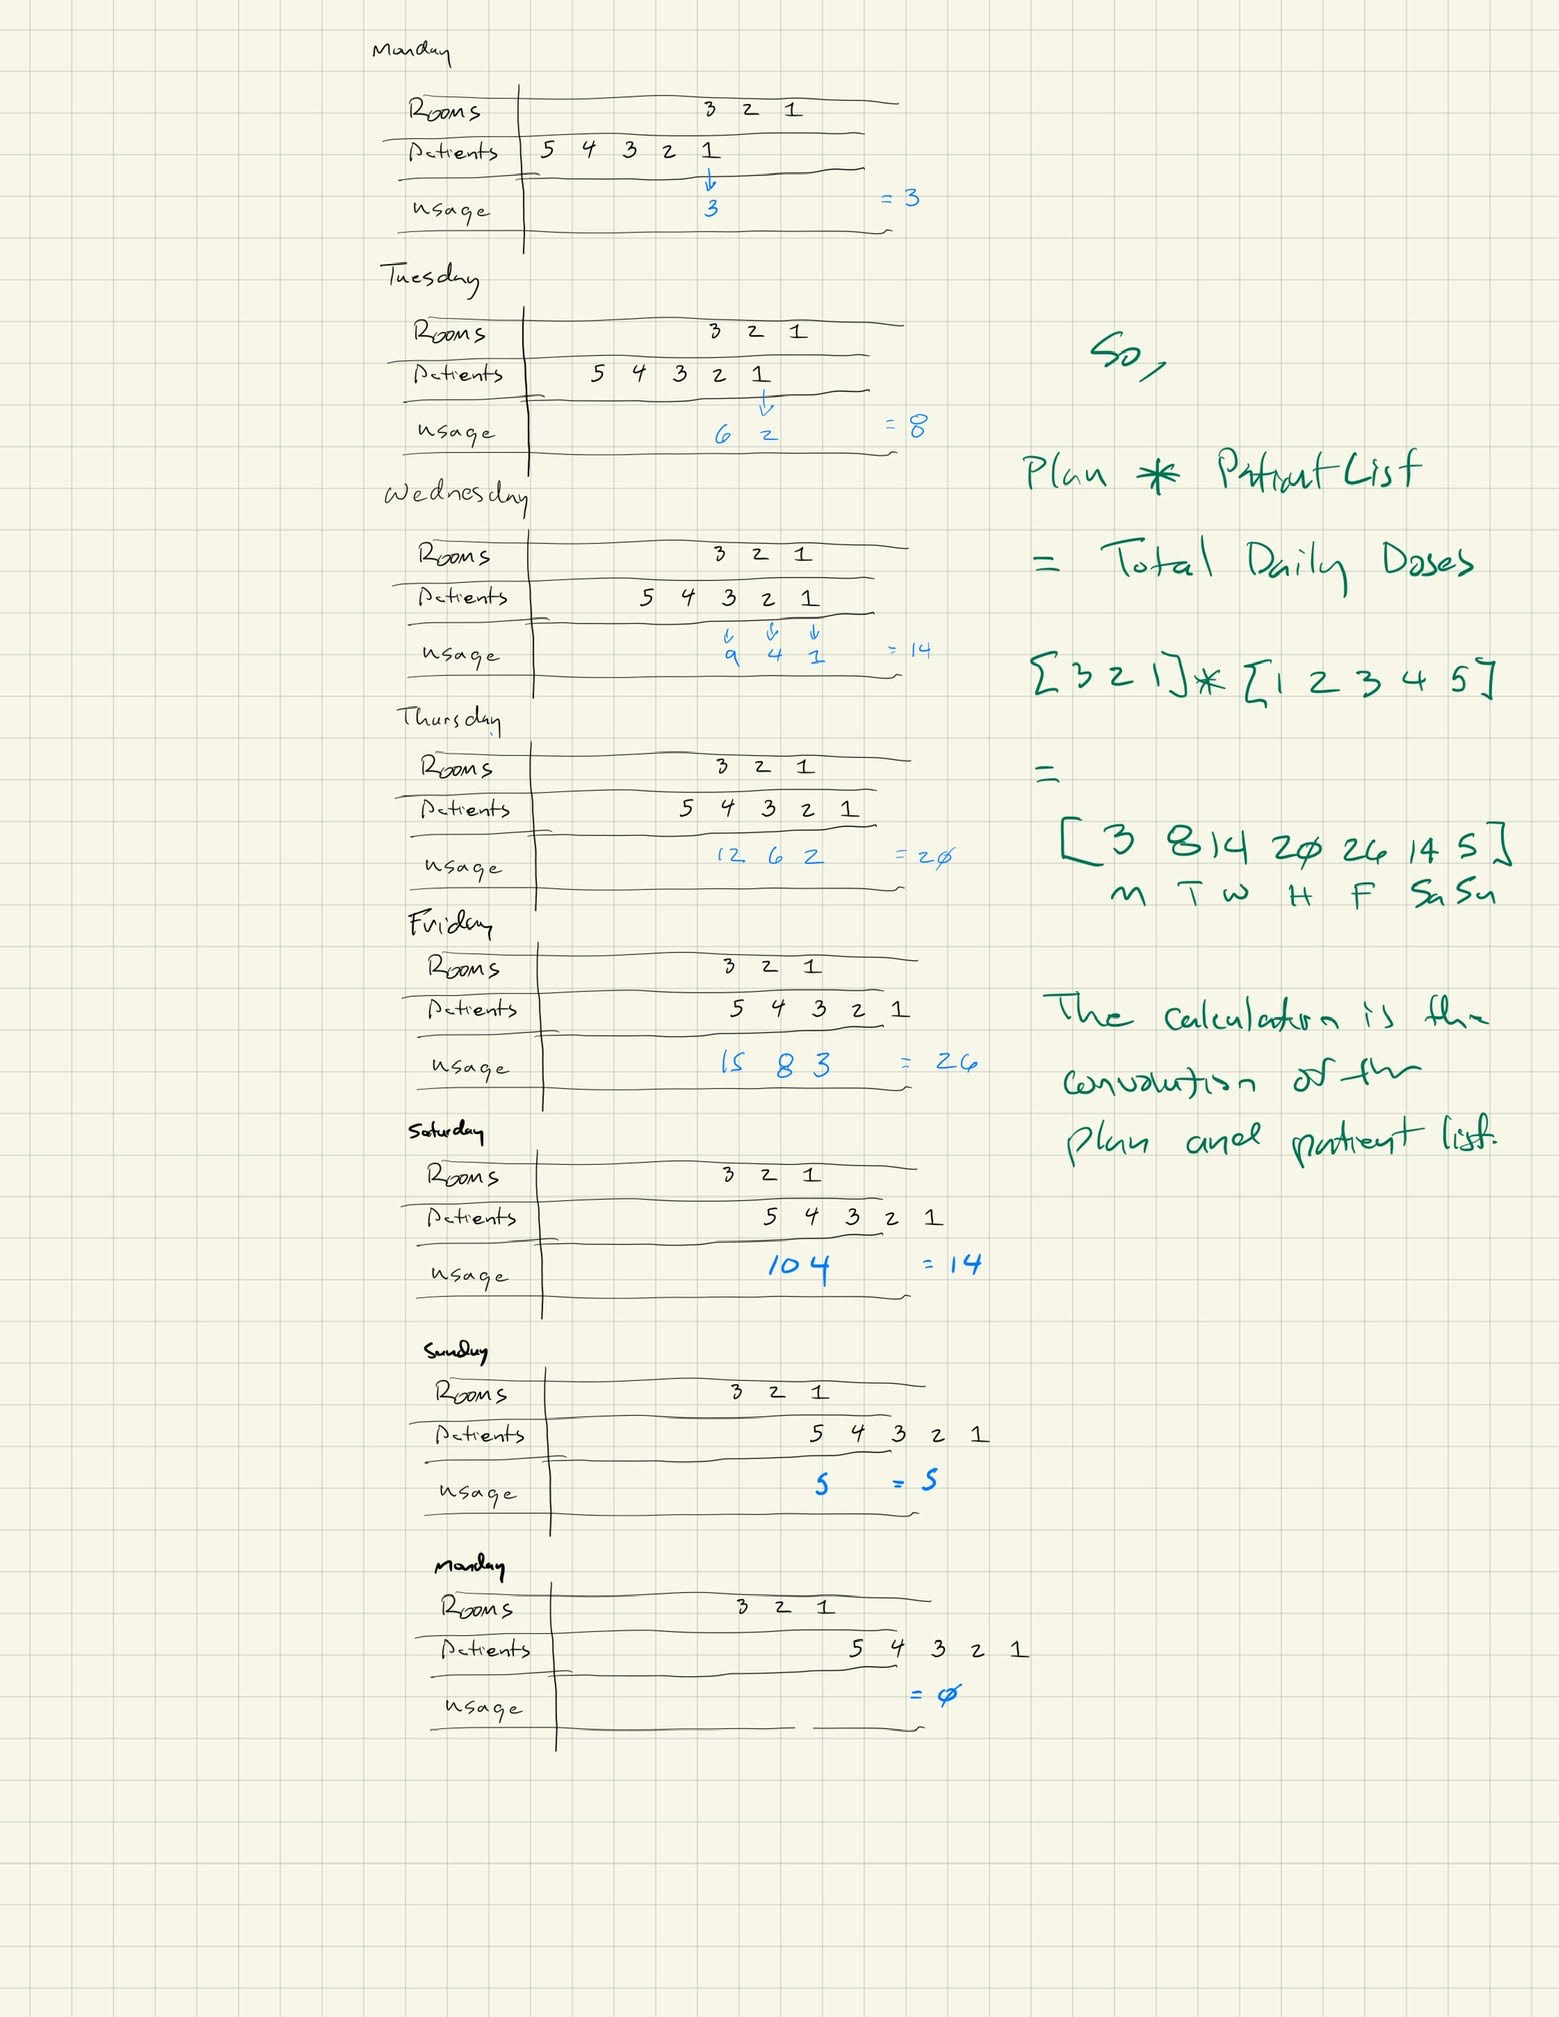 Monday
Rooms 3 2 1
Patients 5 4 3 2 1
usage 3 = 3
Tuesday
Rooms 3 2 1
Patients 5 4 3 2 1
usage 6 2 = 8
Wednesday
Rooms 3 2 1
Patients 5 4 3 2 1
usage 9 4 1 = 14
Thursday
Rooms 3 2 1
Patients 5 4 3 2 1
usage 12 6 2 = 20
Friday
Rooms 3 2 1
Patients 5 4 3 2 1
usage 15 8 3 = 26
Saturday
Rooms 3 2 1
Patients 5 4 3 2 1
usage 10 4 = 14
Sunday
Rooms 3 2 1
Patients 5 4 3 2 1
usage 5 = 5
Monday
Rooms 3 2 1
Patients 5 4 3 2 1
usage = 0
So,
Plan * Patient List
= Total Daily Doses
[3 2 1] * [1 2 3 4 5]
=
[3 8 14 20 26 14 5]
M T W H F Sa Su
The calculation is the
convolution of the
plan and patient list.